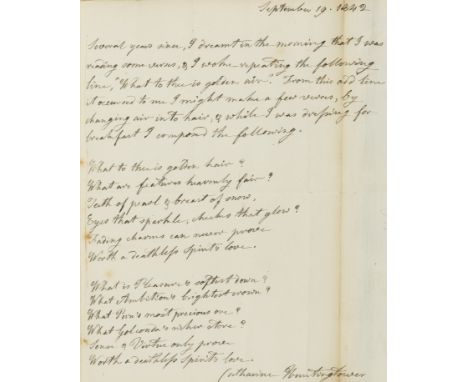 September 19. 1842
Several years since, I dreamt in the morning that I was
reading some verses, & I woke repeating the following
line, "What to thee is golden air". From this odd line
it occurred to me I might make a few verses, by
changing air into hair, & while I was dressing for
breakfast I composed the following.
What to thee is golden hair?
What are features heavenly fair?
Teeth of pearl & breast of snow,
Eyes that sparkle, cheeks that glow?
Fading charms can never prove
Worth a deathless spirit's love.
What is Pleasure's softest down?
What Ambition's brightest crown?
What Peru's most precious ore?
What Golconda's richer store?
Sense & Virtue only prove
Worth a deathless spirit's love.
Catharine Huntingtower